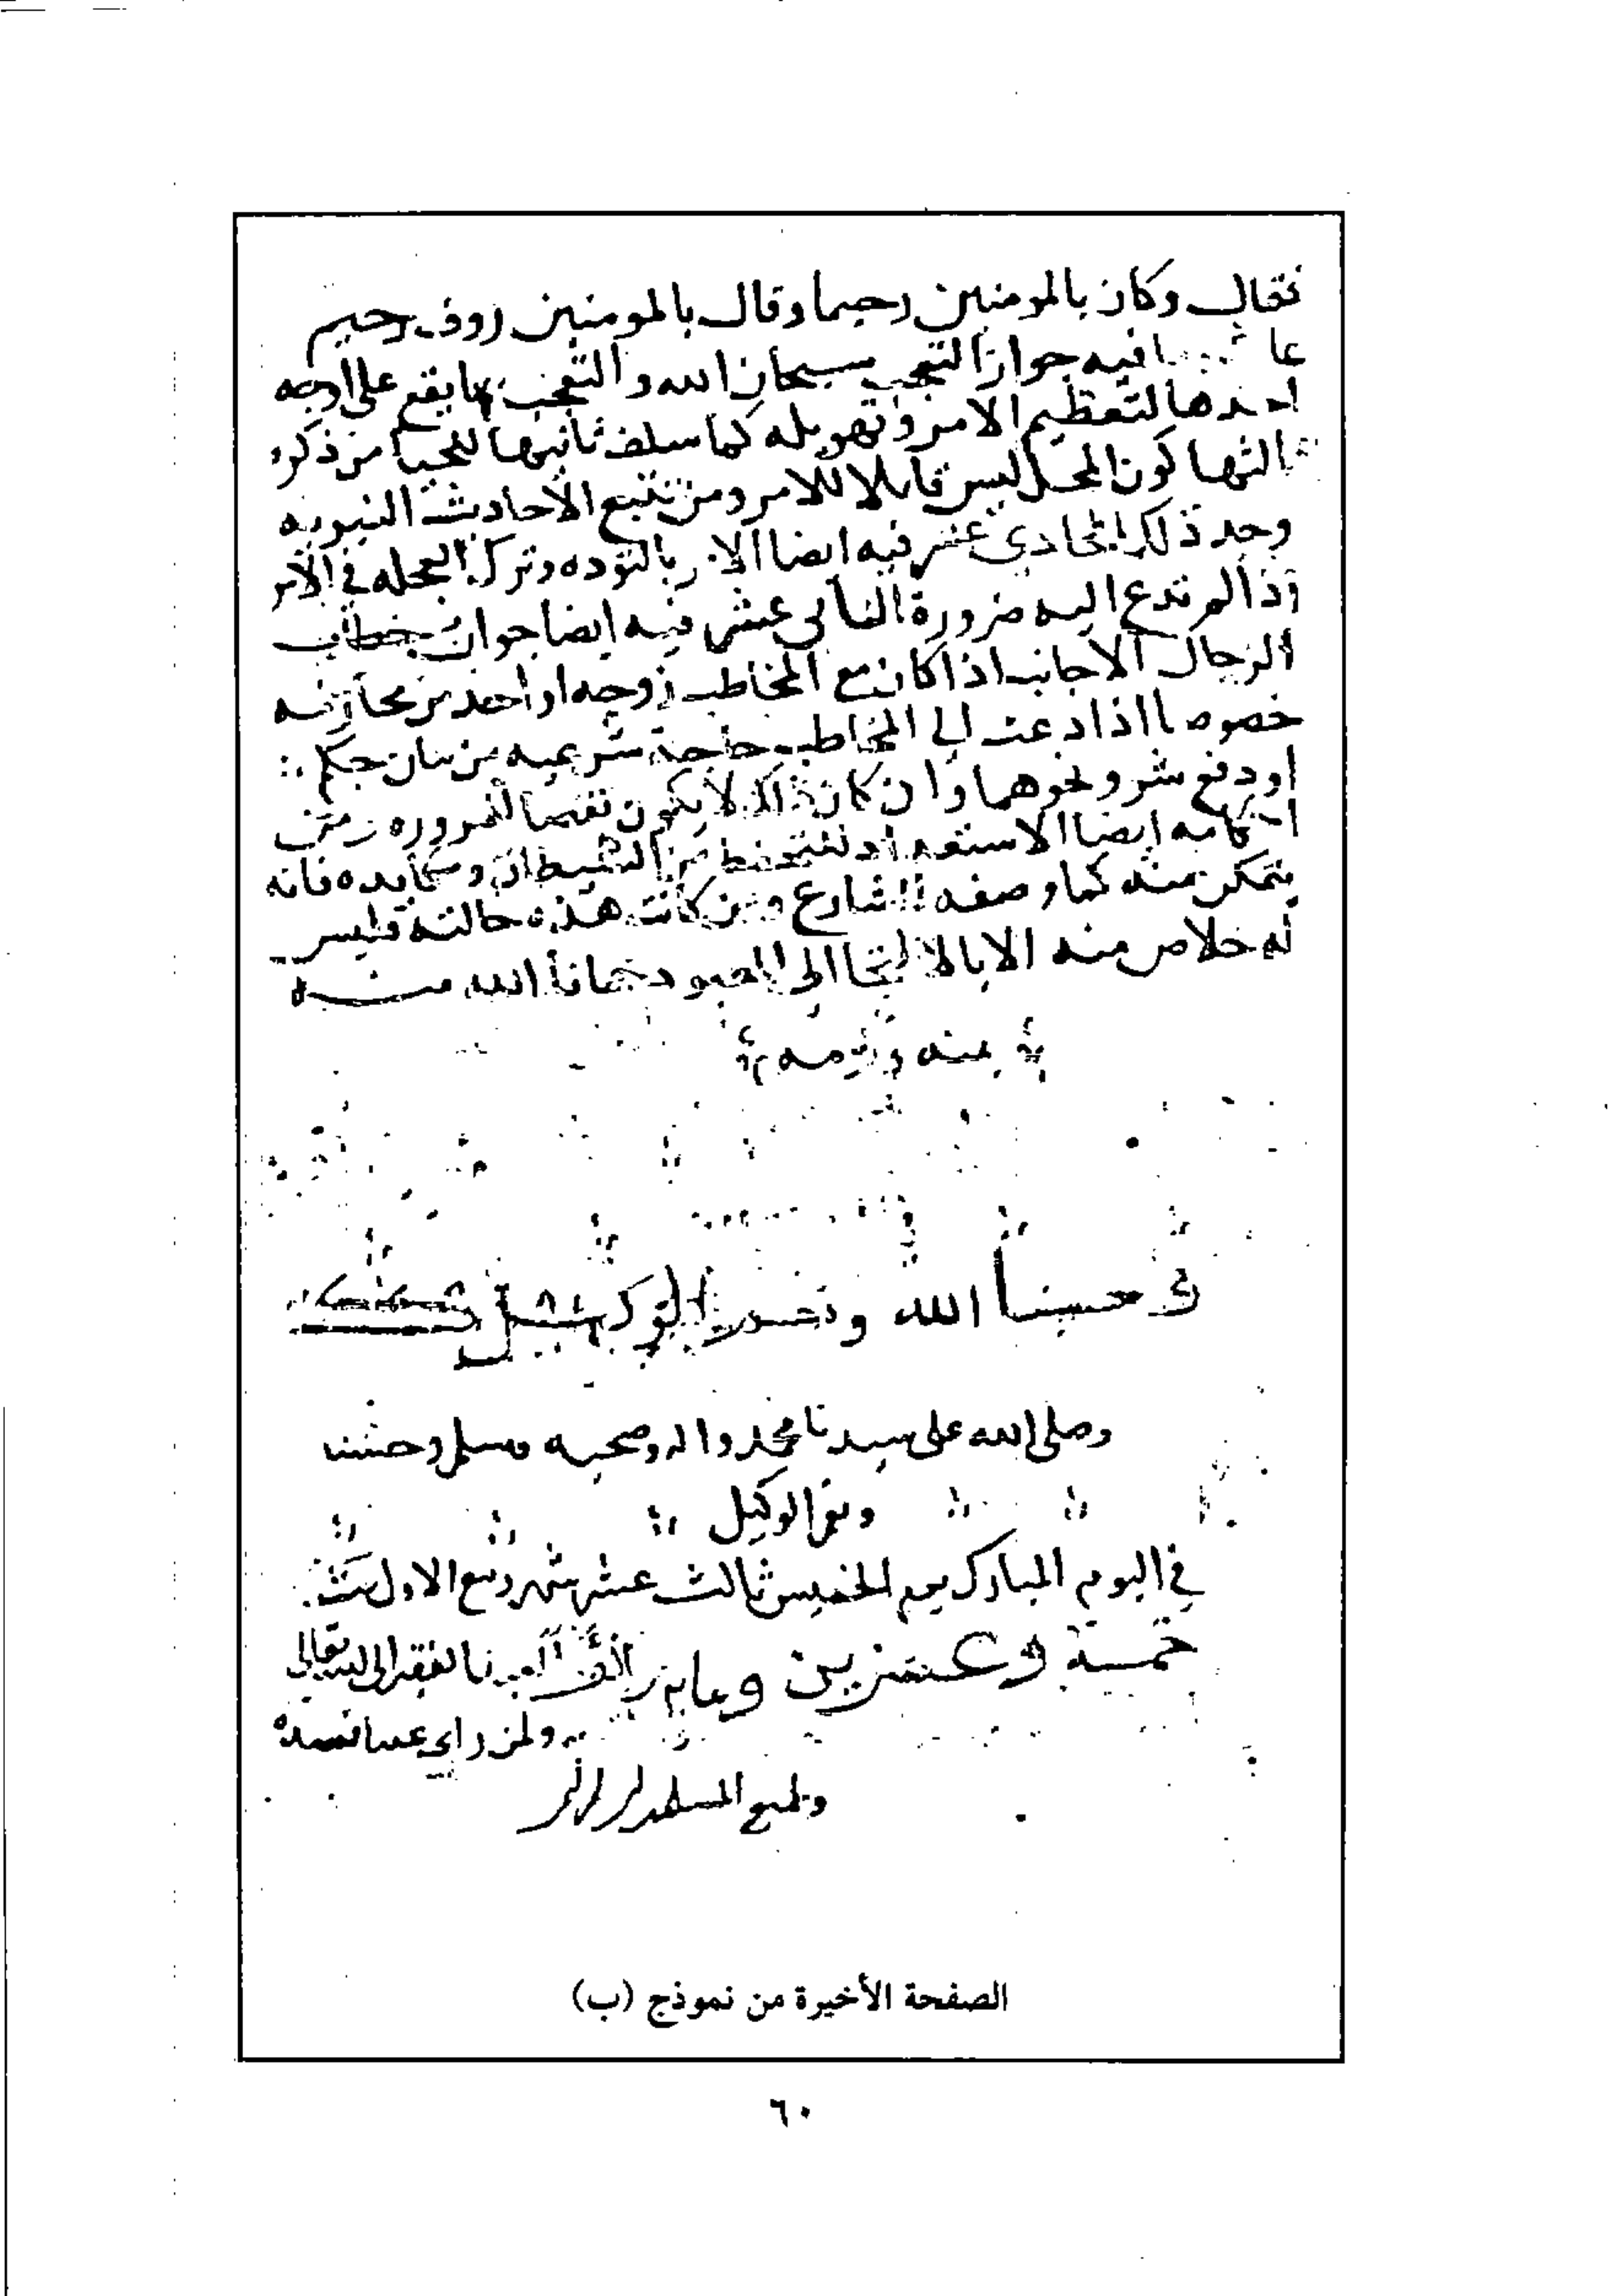 فقال وكان بالمومنين رحيما وقال بالمومنين روف رحيم
فيه جواز التعجب بسبحان الله والتعجب يقع على اوجه
احدها لتعظيم الامر وتهويله كما سلف ثانيها من ذكره
ثالثها كون المحل ليس قابلا للامر ومن تتبع الأحاديث النبويه
وجد ذلك الحادي عشر فيه ايضا الامر بالتوده وترك العجله في الأمر
اذا لم تدع اليه ضرورة الثاني عشر فيه ايضا جواز خطاب
الرجال الاجانب اذا كان مع المخاطب زوجه او احد من محارمه
خصوصا اذا دعت الى المخاطب حاجة شرعيه من بيان حكم
او دفع شر ونحوهما وان كان ذلك لا يكون نقصا لضروره ومن
احكامه ايضا الاستعداد للتحفظ من الشيطان ومكايده فانه
يتمكن منه كما وصفه الشارع ومن كانت هذه حالته فليس
له خلاص منه الا بالالتجا الى المعبود حمانا الله منه
بمنه وكرمه
وحسبنا الله ونعم الوكيل
وصلى الله على سيدنا محمد واله وصحبه وسلم وحسبنا
ونعم الوكيل
في اليوم المبارك يوم الخميس ثالث عشر شهر ربيع الاول سنة
خمسة وعشرين الفقير الى الله تعالى
ولمن راى عيبا فسده
ولجميع المسلمين
الصفحة الأخيرة من نموذج (ب)
٦٠